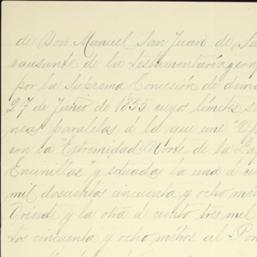 de Don Manuel San Juan de Sa
causante de la Testamentaría
por la Suprema Comision de
27 de Junio de 1855 cuyos límites s
neas paralelas á la que une
con la Extremidad Norte de la
Encinillas" y situadas la una á
mil doscientos cincuenta y ocho me
Oriente y la otra á ciento tres mil
tos cincuenta y ocho métros al Pon